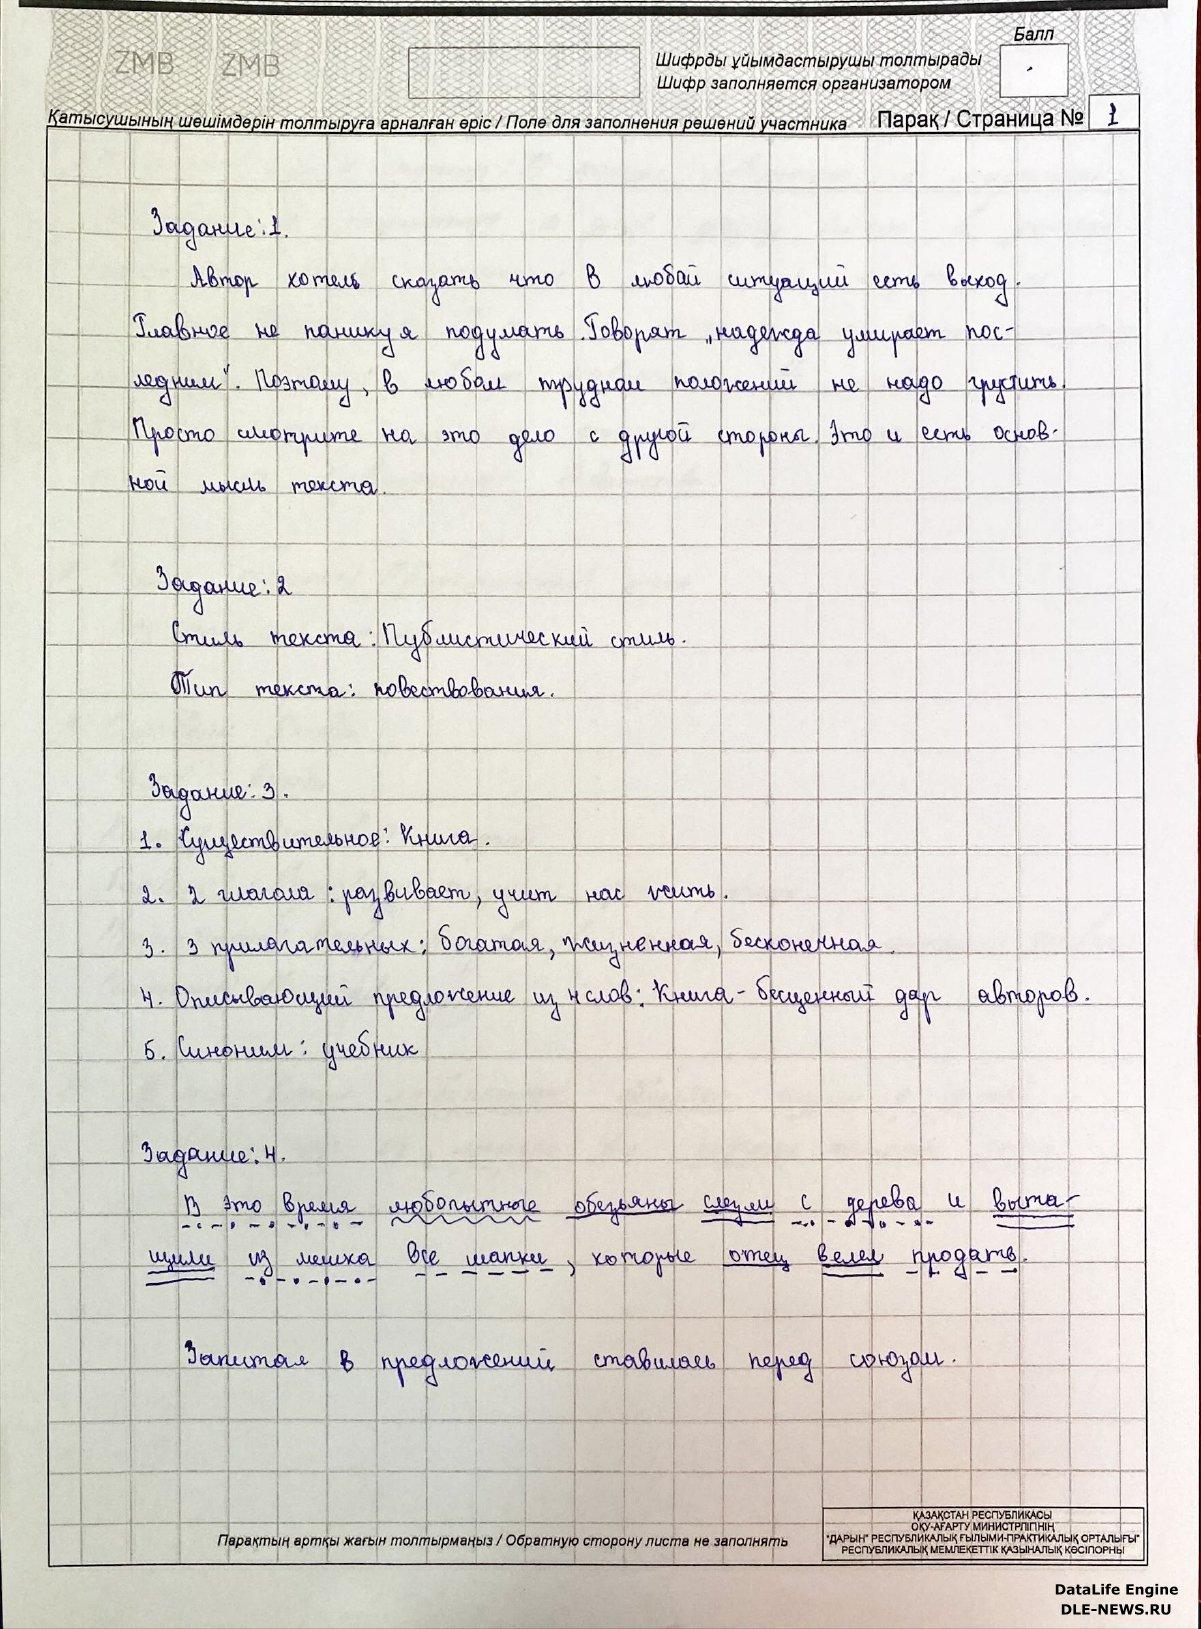 ZMB ZMB
Балл
Шифрды ұйымдастырушы толтырады
Шифр заполняется организатором
Қатысушының шешімдерін толтыруға арналған өріс / Поле для заполнения решений участника
Парақ / Страница № 1
Задание:1.
Автор хотель сказать что в любай ситуаций есть выход.
Главное не паникуя подумать. Говорят „надежда умирает пос-
ледним". Поэтому, в любом трудном положений не надо грустить.
Просто смотрите на это дело с другой стороны. Это и есть основ-
ной мысль текста.
Задание:2
Стиль текста: Публистический стиль.
Тип текста: повествования.
Задание:3.
1. Существительное: Книга.
2. 2 глагола: развивает, учит нас жить.
3. 3 прилагательных: богатая, жизненная, бесконечная.
4. Описывающий предложение из 4 слов: Книга - бесценный дар авторов.
5. Синоним: учебник
Задание:4.
В это время любопытные обезьяны слезли с дерева и выта-
щили из мешка все шапки, которые отец велел продать.
Запитая в предложений ставилась перед союзом.
Парақтың артқы жағын толтырмаңыз / Обратную сторону листа не заполнять
ҚАЗАҚСТАН РЕСПУБЛИКАСЫ
ОҚУ-АҒАРТУ МИНИСТРЛІГІНІҢ
"ДАРЫН" РЕСПУБЛИКАЛЫҚ ҒЫЛЫМИ-ПРАКТИКАЛЫҚ ОРТАЛЫҒЫ"
РЕСПУБЛИКАЛЫҚ МЕМЛЕКЕТТІК ҚАЗЫНАЛЫҚ КӘСІПОРНЫ
DataLife Engine
DLE-NEWS.RU